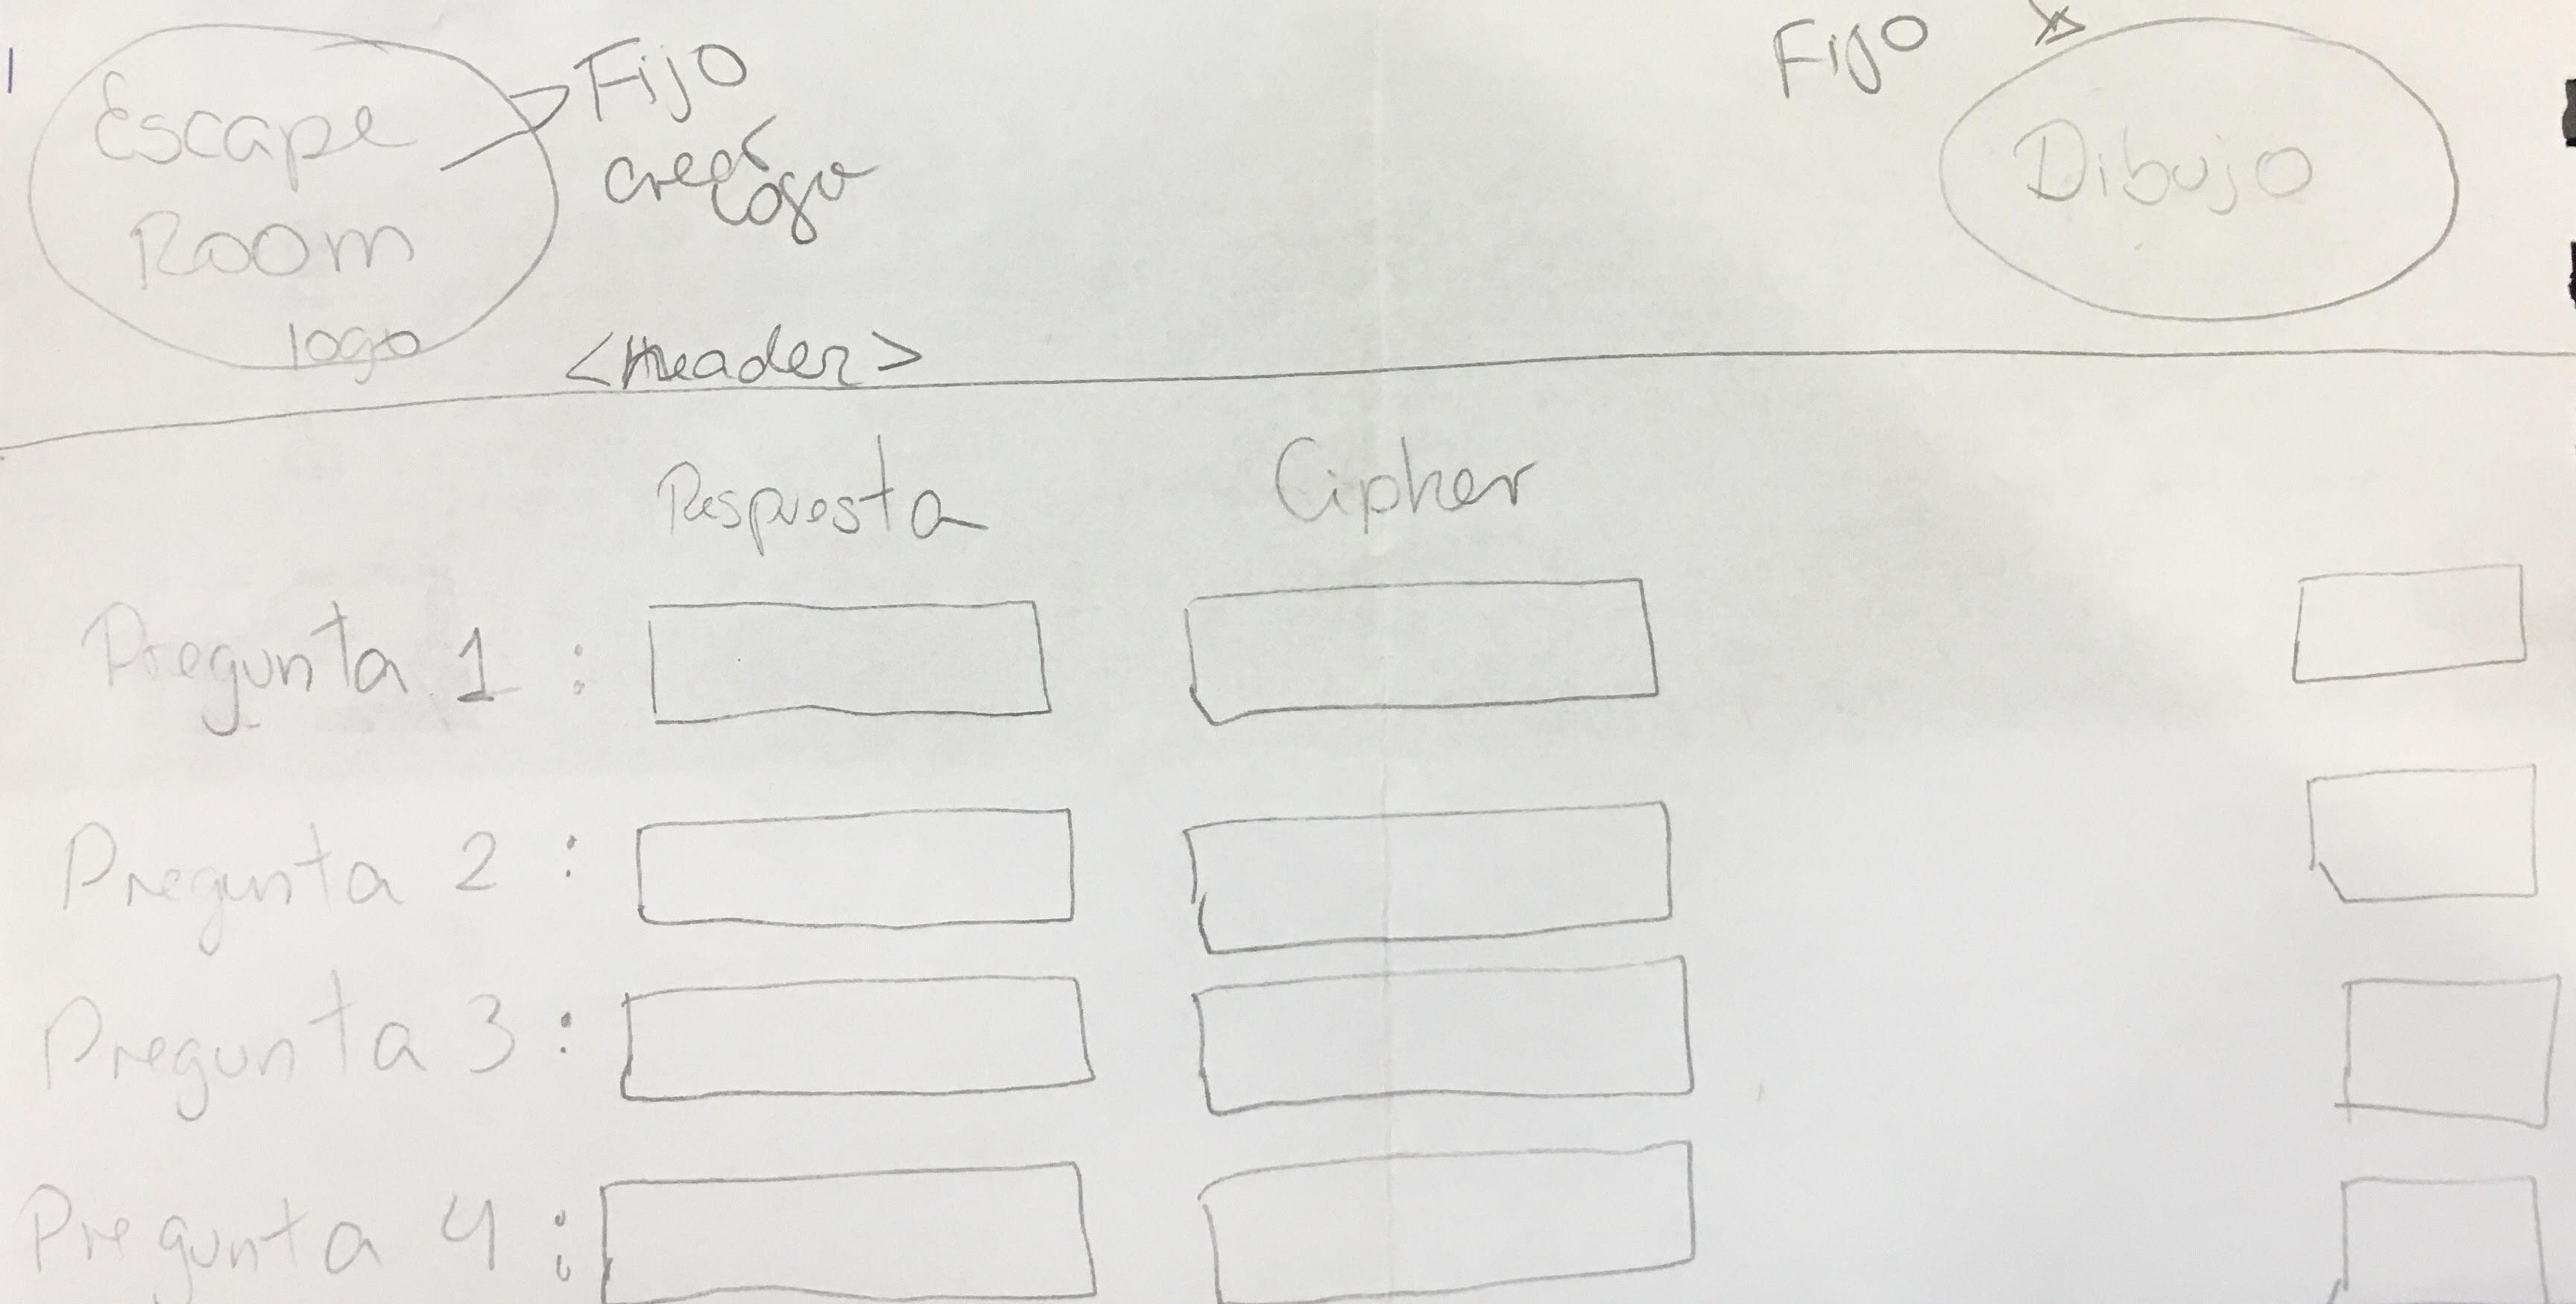 Escape
Room
logo
Fijo
crear
logo
Fijo
Dibujo
<Header>
Respuesta Cipher
Pregunta 1 :
Pregunta 2 :
Pregunta 3 :
Pregunta 4 :